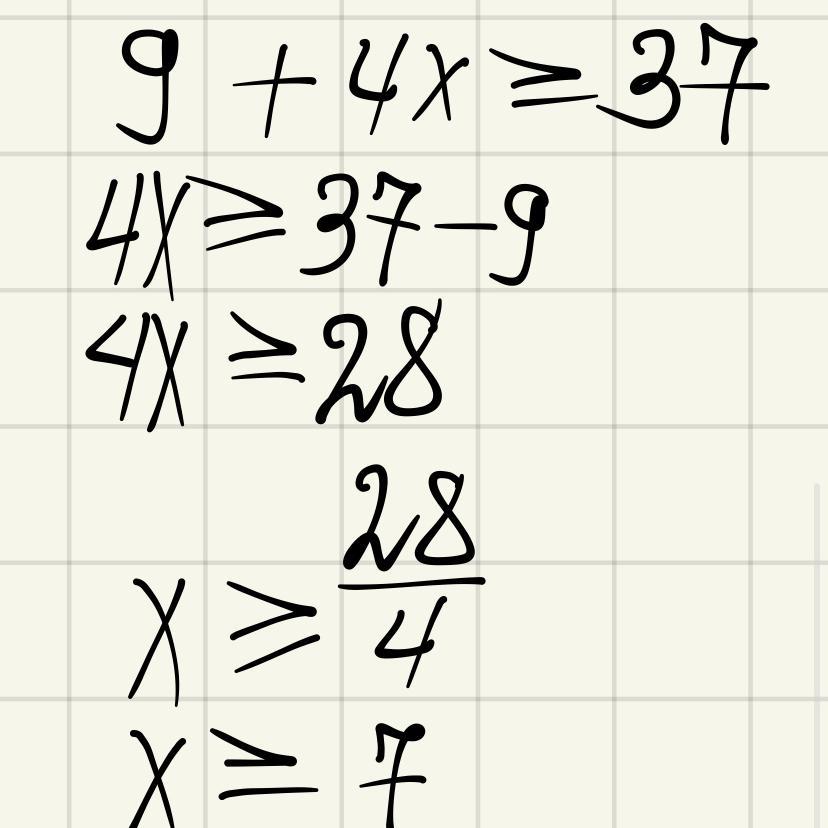 9 + 4x ≥ 37
4x ≥ 37 - 9
4x ≥ 28
x ≥ 28/4
x ≥ 7